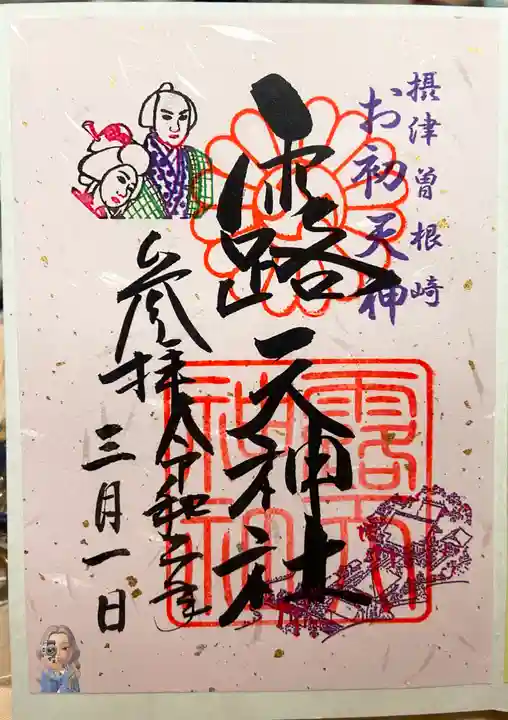 摂津曽根崎
お初天神
露天神社
参拝
令和六年
三月一日
露天
神社